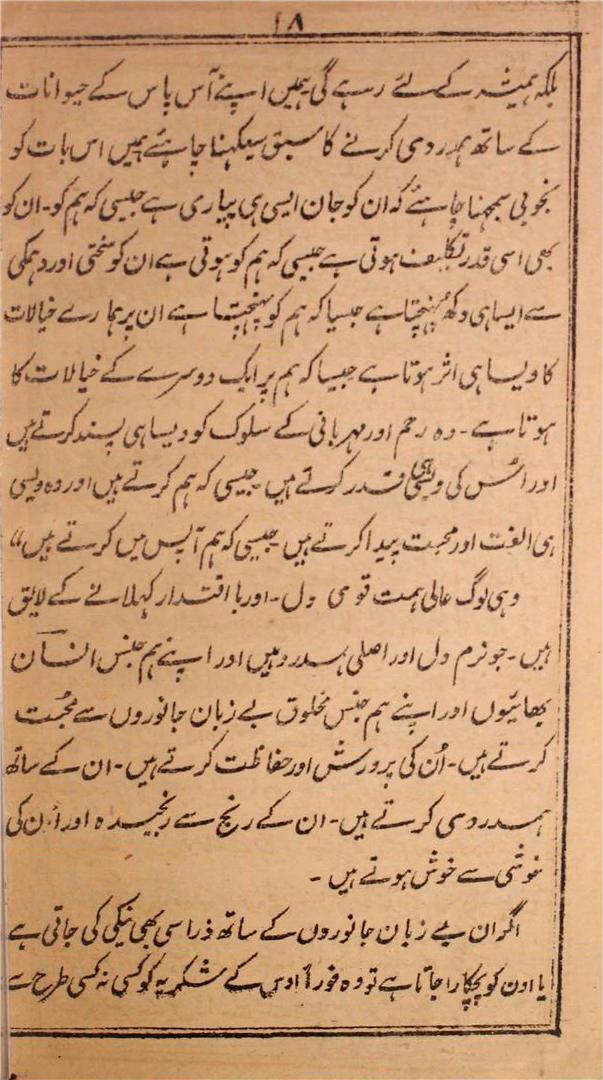 ۱۸
بلکہ ہمیشہ کے لئے رہے گی ہمیں اپنے آس پاس کے حیوانات
کے ساتھ ہمدردی کرنے کا سبق سیکہنا چاہئے ہمیں اس بات کو
بخوبی سمجہنا چاہئے کہ ان کو جان ایسی ہی پیاری ہے جیسی کہ ہم کو۔ ان کو
بھی اسی قدر تکلیف ہوتی ہے جیسی کہ ہم کو ہوتی ہے ان کو سختی اور دہمکی
سے ایسا ہی دکھ پہنچتا ہے جیسا کہ ہم کو پہنچتا ہے ان پر ہمارے خیالات
کا ویسا ہی اثر ہوتا ہے جیسا کہ ہم پر ایک دوسرے کے خیالات کا
ہوتا ہے۔ وہ رحم اور مہربانی کے سلوک کو ویسا ہی پسند کرتے ہیں
اور اُس کی ویسی ہی قدر کرتے ہیں جیسی کہ ہم کرتے ہیں اور وہ ویسی
ہی الفت اور محبت پیدا کرتے ہیں۔ جیسی کہ ہم آپس میں کرتے ہیں“
وہی لوگ عالی ہمت قومی دل۔ اور با اقتدار کہلانے کے لایق
ہیں۔ جو نرم دل اور اصلی ہمدرد ہیں اور اپنے ہم جنس انسان
بھائیوں اور اپنے ہم جنس مخلوق بے زبان جانوروں سے محبت
کرتے ہیں۔ اُن کی پرورش اور حفاظت کرتے ہیں۔ ان کے ساتھ
ہمدردی کرتے ہیں۔ ان کے رنج سے رنجیدہ اور اُن کی
خوشی سے خوش ہوتے ہیں۔
اگر ان بے زبان جانوروں کے ساتھ ذرا سی بھی نیکی کی جاتی ہے
یا اون کو پچکارا جاتا ہے تو وہ فوراً اوس کے شکریہ کو کسی نہ کسی طرح سے